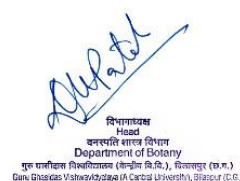 DMPatel
विभागाध्यक्ष
Head
वनस्पति शास्त्र विभाग
Department of Botany
गुरू घासीदास विश्वविद्यालय (केन्द्रीय वि.वि.), बिलासपुर (छ.ग.)
Guru Ghasidas Vishwavidyalaya (A Central University), Bilaspur (C.G.)